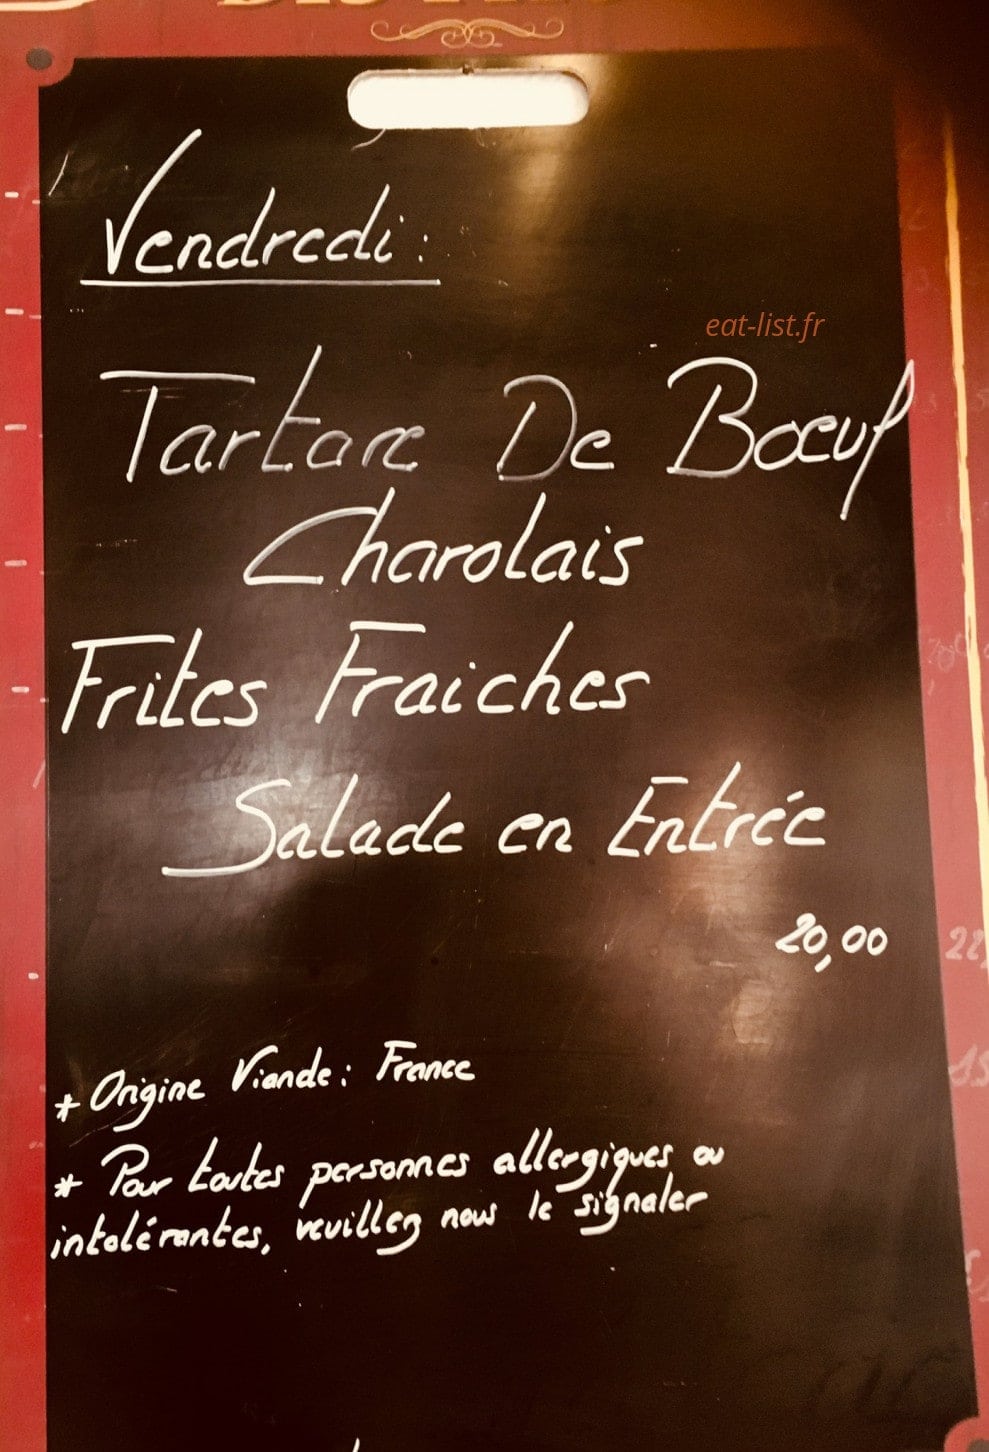 Vendredi :
eat-list.fr
Tartare De Bœuf
Charolais
Frites Fraiches
Salade en Entrée
20,00
* Origine Viande : France
* Pour toutes personnes allergiques ou
intolérantes, veuillez nous le signaler